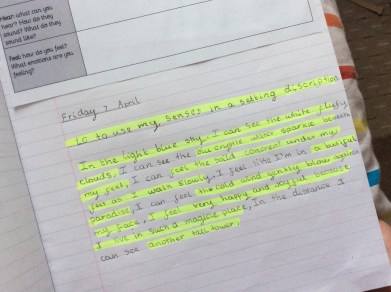 Hear: what can you
hear? How do they
sound? What do they
sound like?
Feel: how do you feel?
What emotions are you
feeling?
Friday 7 April
LO to use my senses in a setting discription
In the light blue sky, I can see the white fluffy
clouds, I can see the blue water sparkle beneath
my feet, I can feel the sand under my
feet as I walk slowly, I feel like I'm in a
paradise, I can feel the cold wind gently blow against
my face, I feel very happy and joyful because
I live in such a magical place, In the distance I
can see another tall tower,